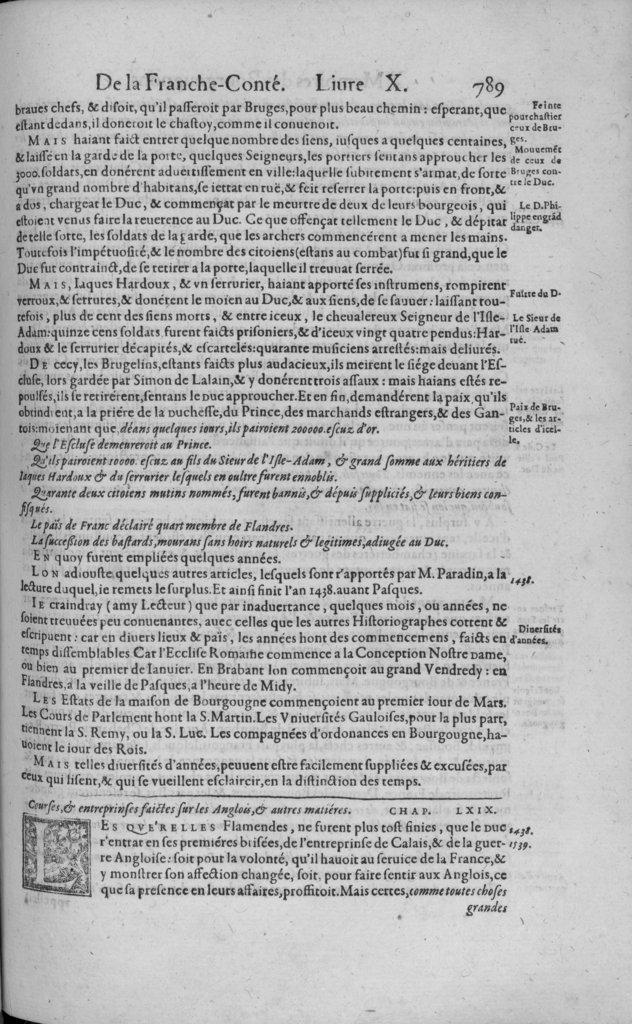 De la Franche-Conté. Liure X. 789
braues chefs, & disoit, qu'il passeroit par Bruges, pour plus beau chemin : esperant, que
estant dedans, il doneroit le chastoy, comme il conuenoit.
Feinte
pour chastier
ceux de Bru-
ges.
MAIS haiant faict entrer quelque nombre des siens, iusques a quelques centaines,
& laissé en la garde de la porte, quelques Seigneurs, les portiers sentans approcher les
3000. soldats, en donérent aduertissement en ville: laquelle subitement s'armat, de sorte
qu'vn grand nombre d'habitans, se iettat en ruë, & feit reserrer la porte: puis en front, &
a dos, chargeat le Duc, & commençat par le meurtre de deux de leurs bourgeois, qui
estoient venus faire la reuerence au Duc. Ce que offençat tellement le Duc, & dépitat
de telle sorte, les soldats de la garde, que les archers commencérent a mener les mains.
Toutefois l'impétuosité, & le nombre des citoiens (estans au combat) fut si grand, que le
Duc fut contrainct, de se retirer a la porte, laquelle il treuuat serrée.
Mouuemẽt
de ceux de
Bruges con-
tre le Duc.
Le D. Phi-
lippe en grãd
danger.
MAIS, Iaques Hardoux, & vn serrurier, haiant apporté ses instrumens, rompirent
verroux, & serrures, & donérent le moien au Duc, & aux siens, de se sauuer: laissant tou-
tefois, plus de cent des siens morts, & entre iceux, le cheualereux Seigneur de l'Isle-
Adam: quinze cens soldats furent faicts prisoniers, & d'iceux vingt quatre pendus: Har-
doux & le serrurier décapités, & escartelés: quarante musiciens arrestés: mais deliurés.
Fuitte du D.
Le Sieur de
l'Isle Adam
tué.
DE cecy, les Brugelins, estants faicts plus audacieux, ils meirent le siége deuant l'Es-
cluse, lors gardée par Simon de Lalain, & y donérent trois assaux : mais haians estés re-
poulsés, ils se retirérent, sentans le Duc approcher. Et en fin, demandérent la paix, qu'ils
obtindrent, a la priére de la Duchesse, du Prince, des marchands estrangers, & des Gan-
tois: moienant que, déans quelques iours, ils pairoient 200000. escuz d'or.
Paix de Bru-
ges, & les ar-
ticles d'icel-
le.
Que l'Escluse demeureroit au Prince.
Qu'ils pairoient 10000. escuz au fils du Sieur de l'Isle-Adam, & grand somme aux héritiers de
Iaques Hardoux & du serrurier lesquels en oultre furent ennoblis.
Quarante deux citoiens mutins nommés, furent bannis, & dépuis suppliciés, & leurs biens con-
fisqués.
Le païs de Franc déclairé quart membre de Flandres.
La succession des bastards, mourans sans hoirs naturels & legitimes, adiugée au Duc.
EN quoy furent empliées quelques années.
LON adiouste quelques autres articles, lesquels sont r'apportés par M. Paradin, a la
lecture duquel, ie remets le surplus. Et ainsi finit l'an 1438. auant Pasques.
1438.
IE craindray (amy Lecteur) que par inaduertance, quelques mois, ou années, ne
soient treuuées peu conuenantes, auec celles que les autres Historiographes cottent &
escripuent : car en diuers lieux & païs, les années hont des commencemens, faicts en
temps dissemblables Car l'Ecclise Romaine commence a la Conception Nostre Dame,
ou bien au premier de Ianuier. En Brabant lon commençoit au grand Vendredy : en
Flandres, a la veille de Pasques, a l'heure de Midy.
Diuersités
d'années.
LES Estats de la maison de Bourgougne commençoient au premier iour de Mars.
Les Cours de Parlement hont la S. Martin. Les Vniuersités Gauloises, pour la plus part,
tiennent la S. Remy, ou la S. Luc. Les compagnées d'ordonances en Bourgougne, ha-
uoient le iour des Rois.
MAIS telles diuersités d'années, peuuent estre facilement suppliées & excusées, par
ceux qui lisent, & qui se vueillent esclaircir, en la distinction des temps.
Courses, & entreprinses faictes sur les Anglois, & autres matiéres. CHAP. LXIX.
LES QVERELLES Flamendes, ne furent plus tost finies, que le Duc
r'entrat en ses premiéres brisées, de l'entreprinse de Calais, & de la guer-
re Angloise: soit pour la volonté, qu'il hauoit au seruice de la France, &
y monstrer son affection changée, soit, pour faire sentir aux Anglois, ce
que sa presence en leurs affaires, proffitoit. Mais certes, comme toutes choses
1438.
1539.
grandes